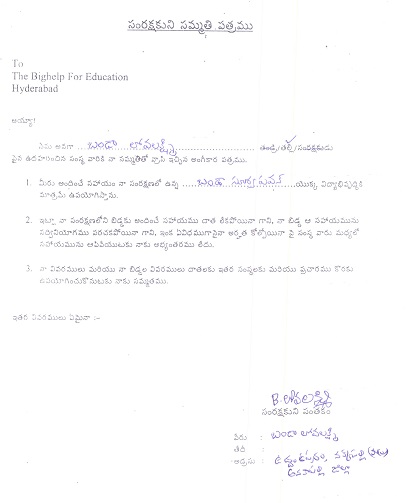 సంరక్షకుని సమ్మతి పత్రము
To
The Bighelp For Education
Hyderabad
అయ్యా!
నేను అనగా ...బండా లోవలక్ష్మి... తండ్రి/తల్లి/సంరక్షకుడు
పైన ఉదహరించిన సంస్థ వారికి నా సమ్మతితో వ్రాసి ఇచ్చిన అంగీకార పత్రము.
1. మీరు అందించే సహాయం నా సంరక్షణలో ఉన్న ...బండా సూర్య పవన్...యొక్క విద్యాభివృద్ధికి
మాత్రమే ఉపయోగిస్తాను.
2. ఇట్లా నా సంరక్షణలోని బిడ్డకు అందించే సహాయము దాత లేకపోయినా గాని, నా బిడ్డ ఆ సహాయమును
సద్వినియోగము పరచకపోయినా గాని, ఇంక ఏవిధముగానైనా అర్హత కోల్పోయినా పై సంస్థ వారు మధ్యలో
సహాయమును ఆపివేయుటకు నాకు అభ్యంతరము లేదు.
3. నా వివరములు మరియు నా బిడ్డల వివరములు దాతలకు ఇతర సంస్థలకు మరియు ప్రచారము కొరకు
ఉపయోగించుకొనుటకు నాకు సమ్మతము.
ఇతర వివరములు ఏమైనా :-
B. లోవలక్ష్మి
సంరక్షకుని సంతకం
పేరు : బండా లోవలక్ష్మి
తేది :
అడ్రసు :
జిల్లా